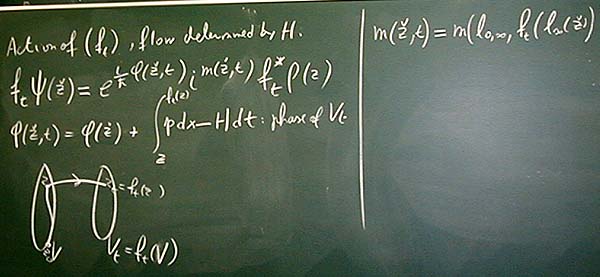 Action of (f_t), flow determined by H.
f_t ψ(ž) = e^{i/ħ φ(ž,t)} i^{m(ž,t)} f_t^* ρ(z)
φ(ž,t) = φ(ž) + ∫_z^{f_t(z)} pdx − Hdt : phase of V_t
z
z_t = f_t(z)
V
V_t = f_t(V)
m(ž,t) = m(l_{0,∞}, f_t(l_∞(ž))